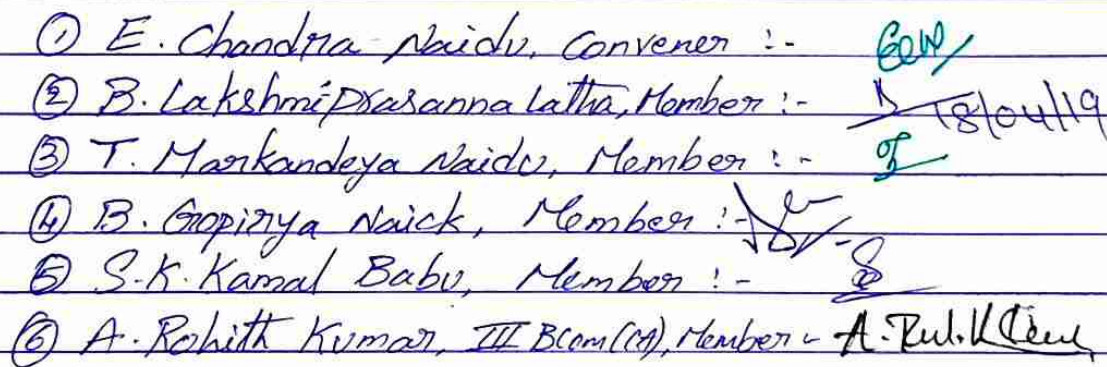 ① E. Chandra Naidu, Convener :-
② B. Lakshmiprasanna Latha, Member :- 18/04/19
③ T. Markandeya Naidu, Member :-
④ B. Gopinya Naick, Member :-
⑤ S.K. Kamal Babu, Member :-
⑥ A. Rohith Kumar, III BCom(CA), Member - A.